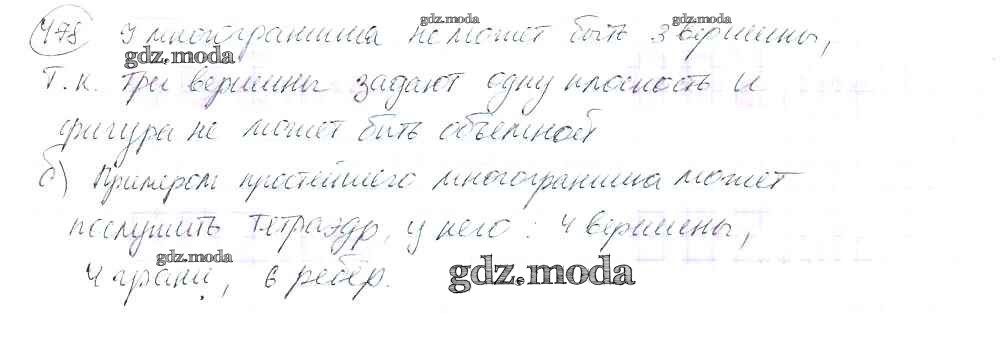 478 У многогранника не может быть 3 вершины,
т.к. три вершины задают одну плоскость и
фигура не может быть объемной
б) Примером простейшего многогранника может
послужить тетраэдр, у него: 4 вершины,
4 грани, 6 ребёр.
gdz.moda
gdz.moda
gdz.moda
gdz.moda
gdz.moda